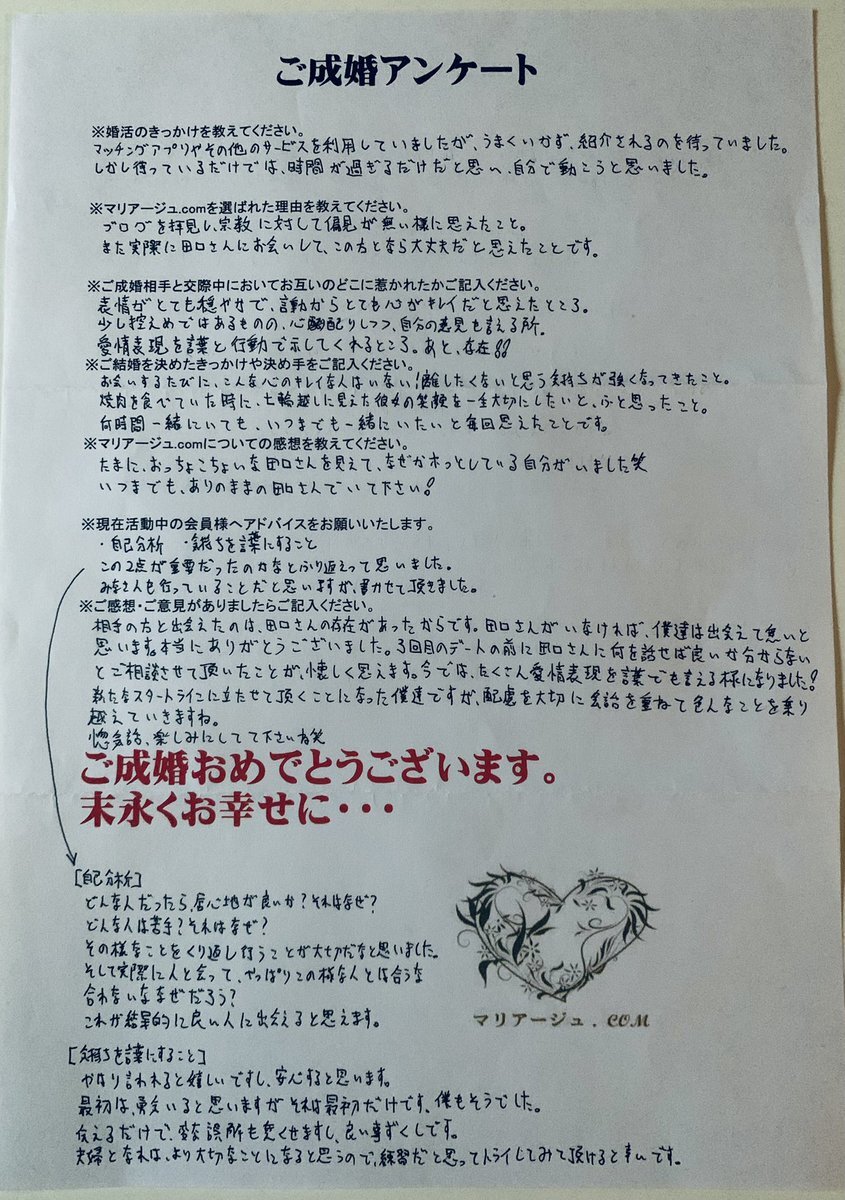 ご成婚アンケート
※婚活のきっかけを教えてください。
マッチングアプリやその他のサービスを利用していましたが、うまくいかず、紹介されるのを待っていました。
しかし待っているだけでは、時間が過ぎるだけだと思い、自分で動こうと思いました。
※マリアージュ.comを選ばれた理由を教えてください。
ブログを拝見し、宗教に対して偏見が無い様に思えたこと。
また実際に田口さんにお会いして、この方となら大丈夫だと思えたことです。
※ご成婚相手と交際中においてお互いのどこに惹かれたかご記入ください。
表情がとても穏やかで、言動からとても心がキレイだと思えたところ。
少し控えめではあるものの、心配りしつつ、自分の意見も言える所。
愛情表現を言葉と行動で示してくれるところ。あと、存在!!
※ご結婚を決めたきっかけや決め手をご記入ください。
お会いするたびに、こんな心のキレイな人はいない!離したくないと思う気持ちが強くなってきたこと。
焼肉を食べていた時に、七輪越しに見えた彼女の笑顔を一生大切にしたいと、ふと思ったこと。
何時間一緒にいても、いつまでも一緒にいたいと毎回思えたことです。
※マリアージュ.comについての感想を教えてください。
たまに、おっちょこちょいな田口さんを見えて、なぜかホッとしている自分がいました笑
いつまでも、ありのままの田口さんでいて下さい!
※現在活動中の会員様へアドバイスをお願いいたします。
・自己分析 ・気持ちを言葉にすること
この2点が重要だったのかなとふり返えって思いました。
みなさんも行っていることだと思いますが、書かせて頂きました。
※ご感想・ご意見がありましたらご記入ください。
相手の方と出会えたのは、田口さんの存在があったからです。田口さんがいなければ、僕達は出会えて無いと
思います。本当にありがとうございました。3回目のデートの前に田口さんに何を話せば良いか分からない
とご相談させて頂いたことが、懐しく思えます。今では、たくさん愛情表現を言葉でも言える様になりました!
新たなスタートラインに立たせて頂くことになった僕達ですが、配慮を大切に会話を重ねて色んなことを乗り
越えていきますね。
惚会話、楽しみにしてて下さいね笑
ご成婚おめでとうございます。
末永くお幸せに・・・
[自己分析]
どんな人だったら、居心地が良いか?それはなぜ?
どんな人は苦手?それはなぜ?
その様なことをくり返し行うことが大切だなと思いました。
そして実際に人と会って、やっぱりこの様な人とは合うな
合わないななぜだろう?
これが結果的に良い人に出会えると思えます。
マリアージュ.COM
[気持ちを言葉にすること]
やはり言われると嬉しいですし、安心すると思います。
最初は、勇気いると思いますがそれは最初だけです、僕もそうでした。
伝えるだけで、変な誤解も無くせますし、良い事ずくしです。
夫婦となれば、より大切なことになると思うので、練習だと思ってトライしてみて頂けると幸いです。